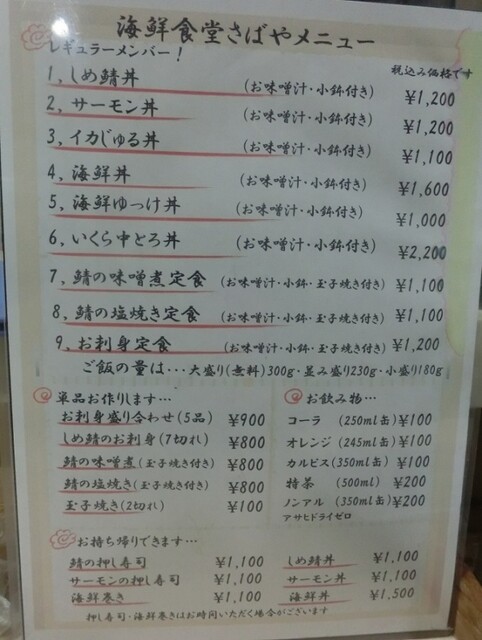 海鮮食堂さばやメニュー
レギュラーメンバー！
税込み価格です
1, しめ鯖丼 (お味噌汁・小鉢付き) ¥1,200
2, サーモン丼 (お味噌汁・小鉢付き) ¥1,200
3, イカじゅる丼 (お味噌汁・小鉢付き) ¥1,100
4, 海鮮丼 (お味噌汁・小鉢付き) ¥1,600
5, 海鮮ゆっけ丼 (お味噌汁・小鉢付き) ¥1,000
6, いくら中とろ丼 (お味噌汁・小鉢付き) ¥2,200
7, 鯖の味噌煮定食 (お味噌汁・小鉢・玉子焼き付き) ¥1,100
8, 鯖の塩焼き定食 (お味噌汁・小鉢・玉子焼き付き) ¥1,100
9, お刺身定食 (お味噌汁・小鉢・玉子焼き付き) ¥1,200
ご飯の量は・・・大盛り(無料)300g・並み盛り230g・小盛り180g
単品お作りします…
お刺身盛り合わせ(5品) ¥900
しめ鯖のお刺身(7切れ) ¥800
鯖の味噌煮(玉子焼き付き) ¥800
鯖の塩焼き(玉子焼き付き) ¥800
玉子焼き(2切れ) ¥100
お飲み物…
コーラ (250ml缶) ¥100
オレンジ (245ml缶) ¥100
カルピス (350ml缶) ¥100
特茶 (500ml) ¥200
ノンアル (350ml缶) ¥200
アサヒドライゼロ
お持ち帰りできます…
鯖の押し寿司 ¥1,100
サーモンの押し寿司 ¥1,100
海鮮巻き ¥1,100
しめ鯖丼 ¥1,100
サーモン丼 ¥1,100
海鮮丼 ¥1,500
押し寿司・海鮮巻きはお時間いただく場合がございます